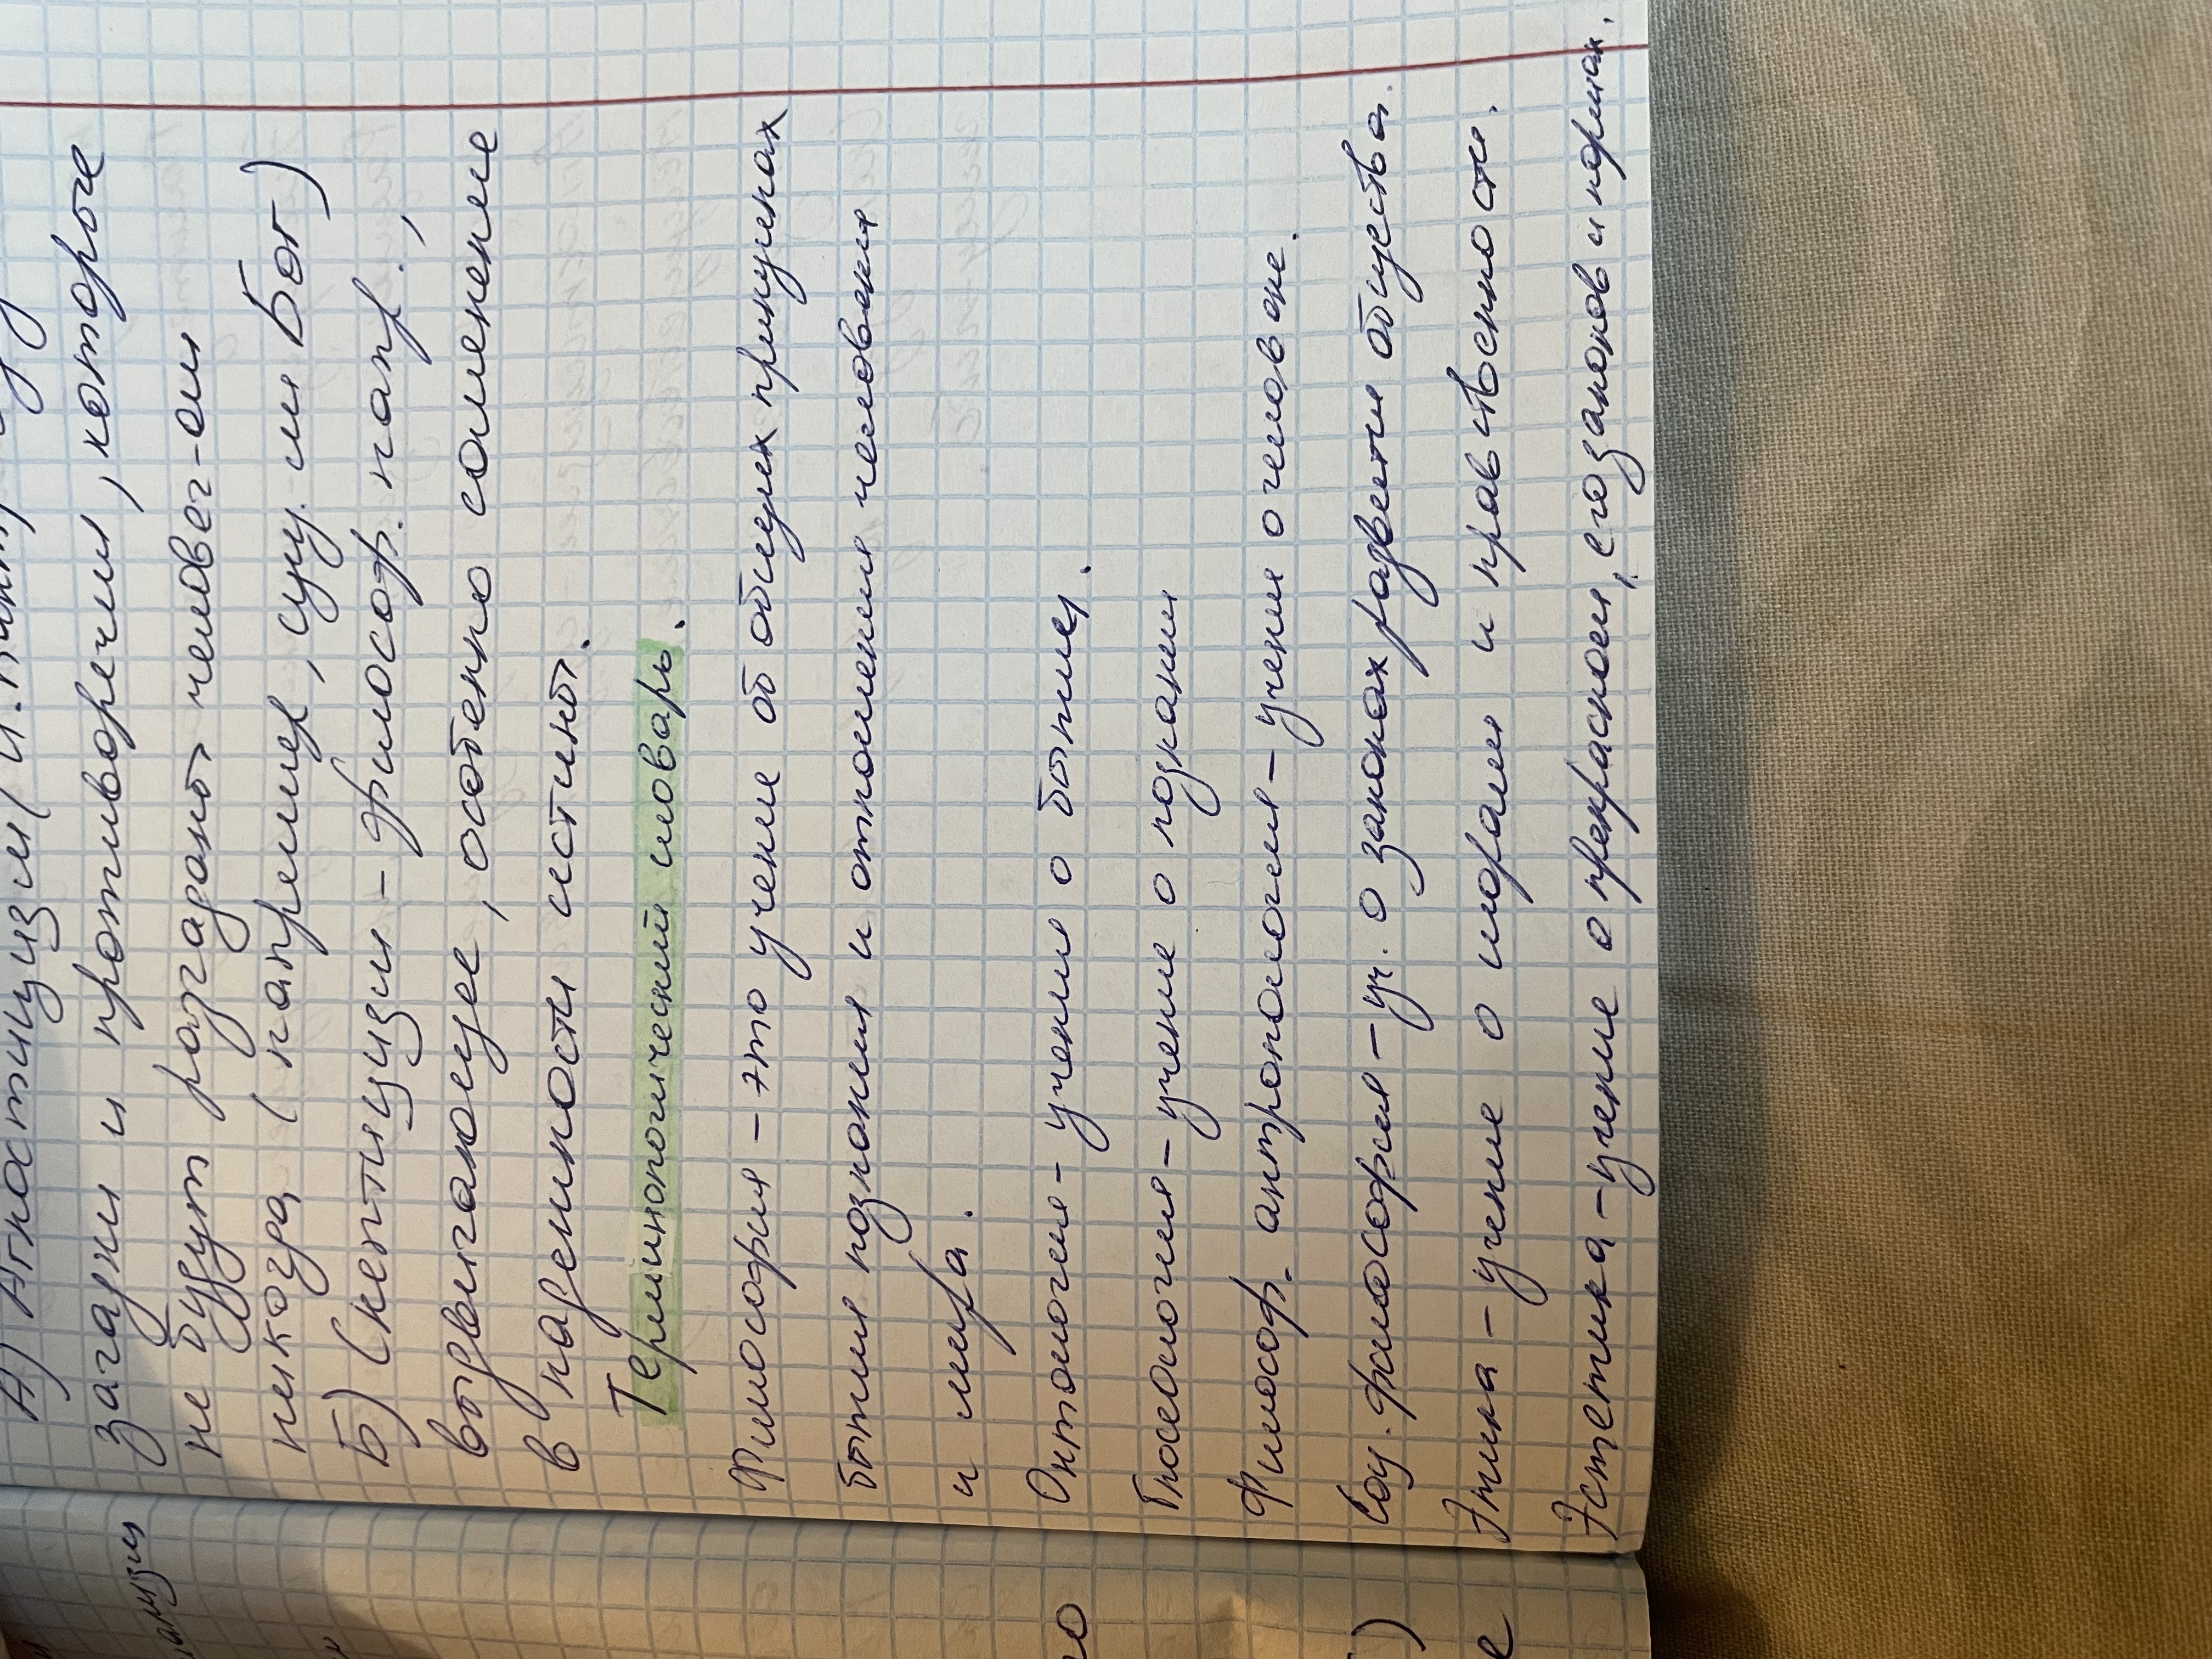 А) Агностицизм (И. Кант)
загадки и противоречия, которые
не будут разгаданы человеч-ом
никогда (например, сущ. ли Бог)
Б) Скептицизм - философ. напр.,
выдвигающее, особенно сомнение
в надежности истины.
Терминологический словарь.
Философия - это учение об общих принципах
бытия познания и отношения человека
и мира.
Онтология - учение о бытие.
Гносеология - учение о познании
Философ. антропология - учение о человеке.
Соц. философия - уч. о законах развети общества.
Этика - учение о морали и нравственности.
Эстетика - учение о прекрасном, его законов и нормах.